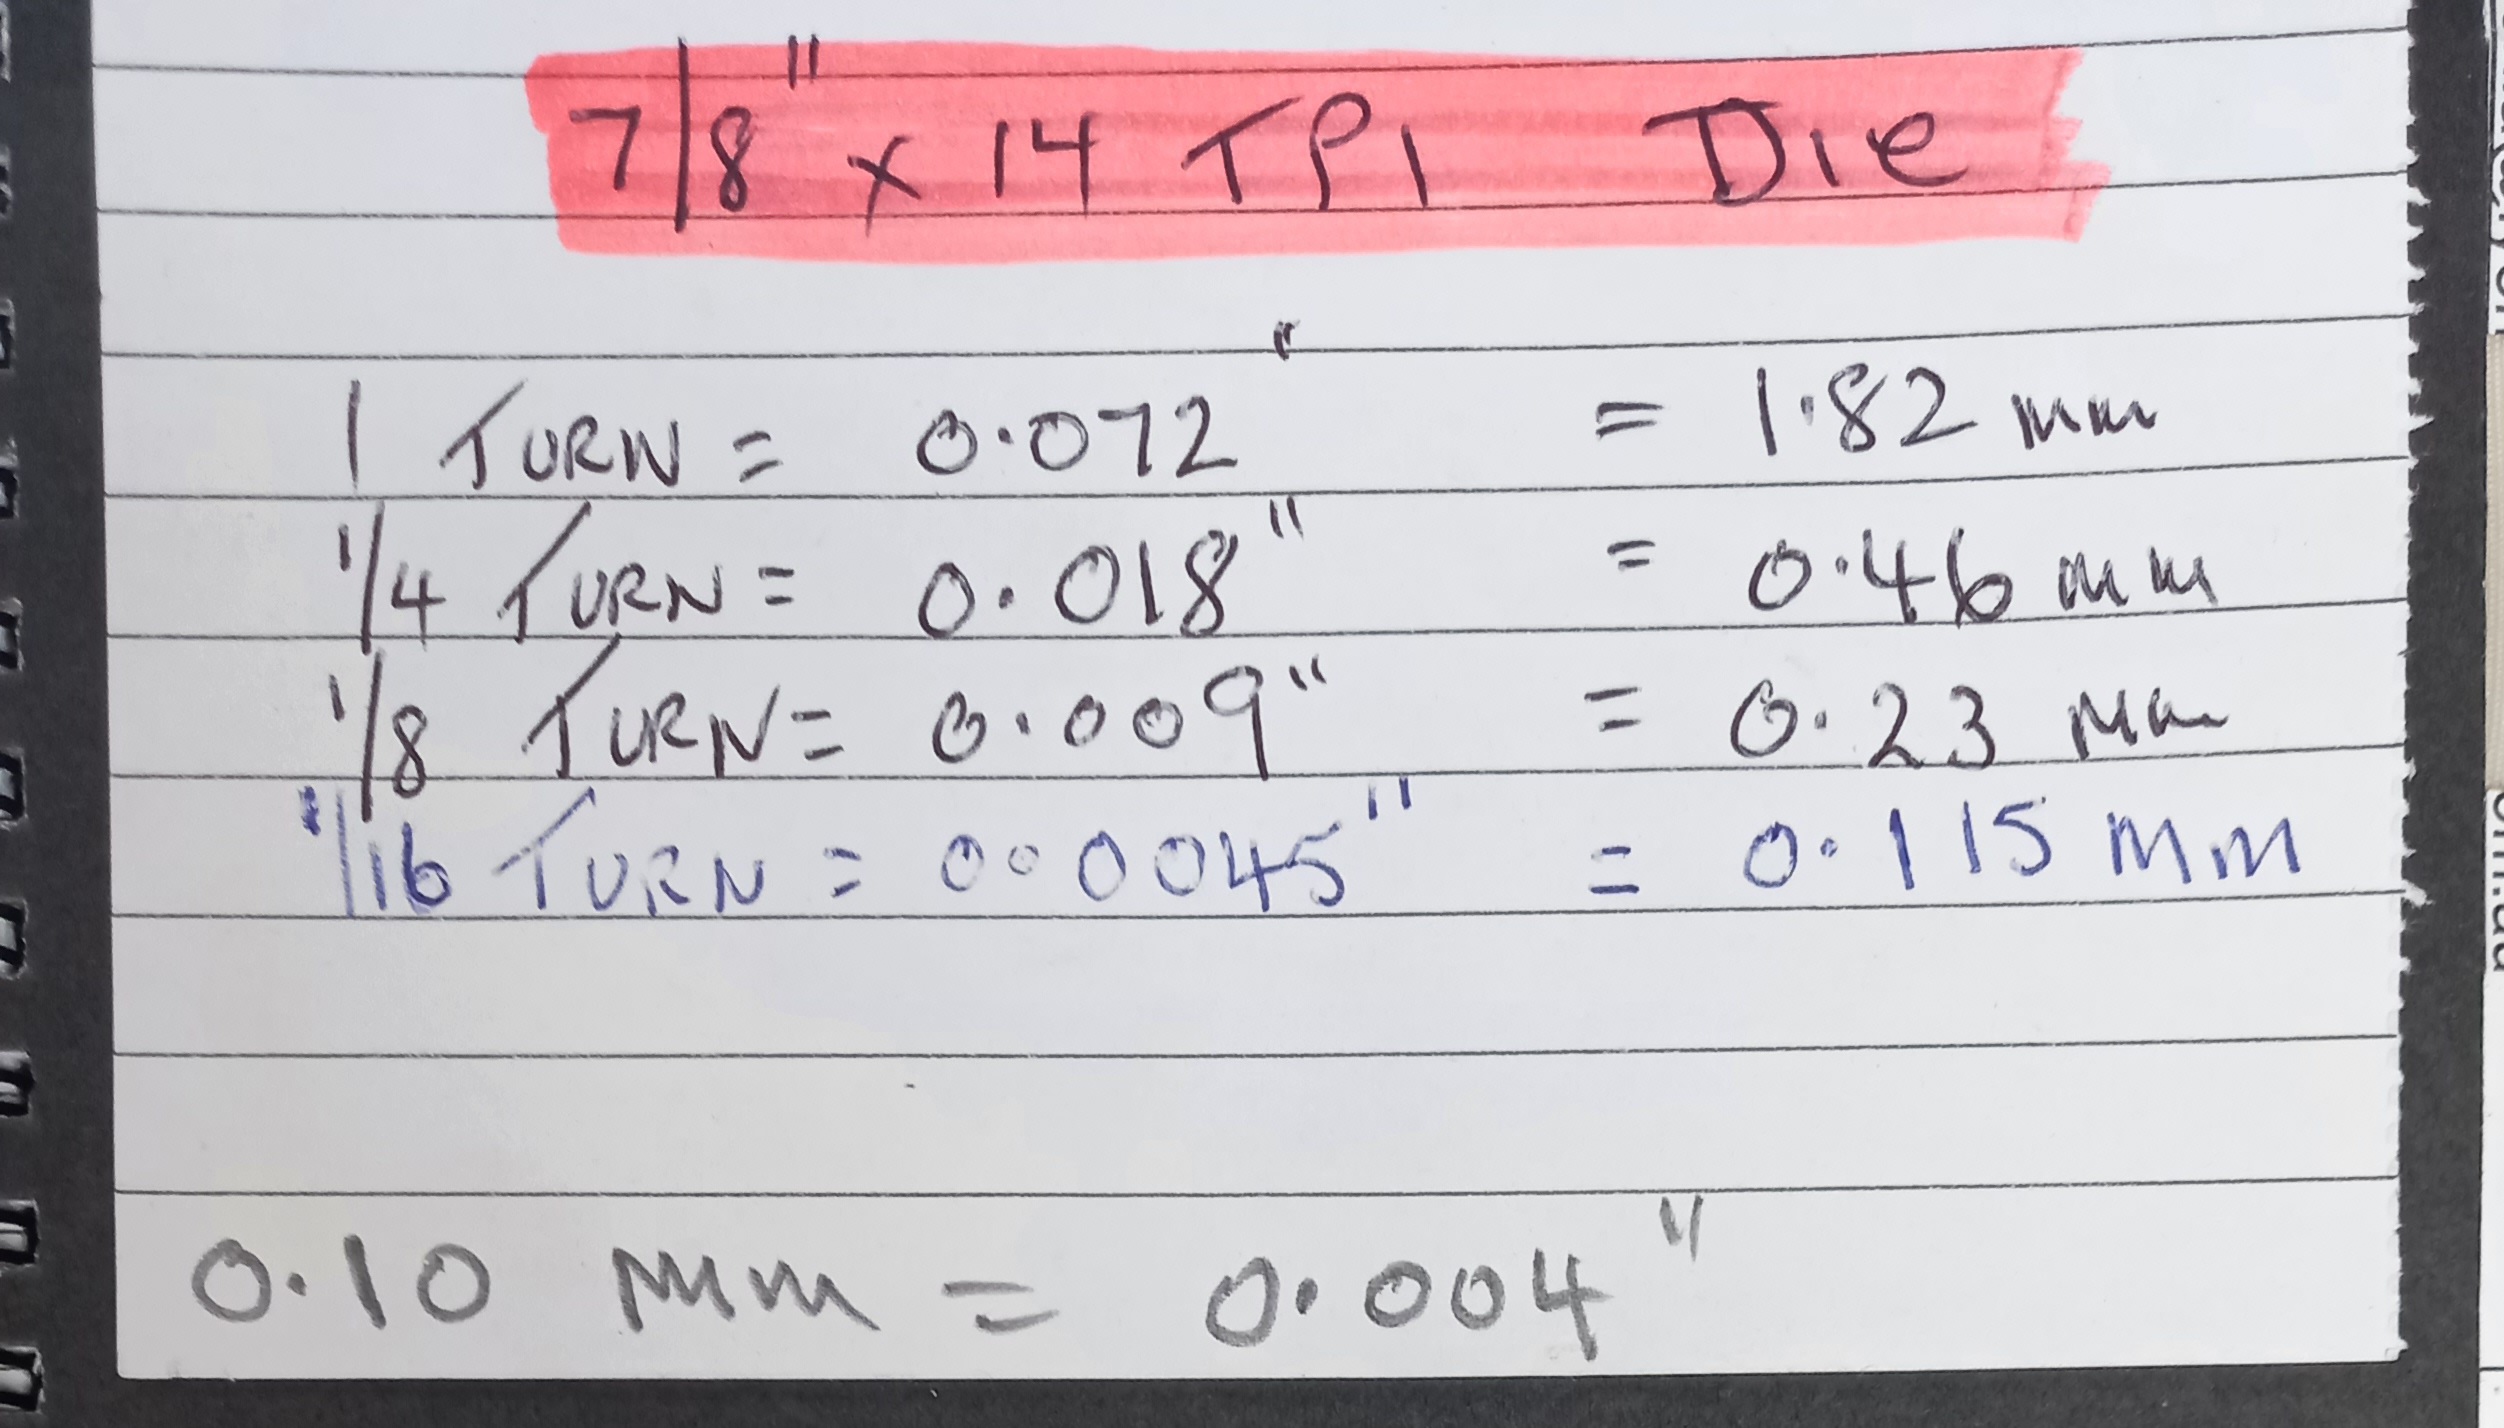 7/8" x 14 TPI Die
1 TURN = 0.072" = 1.82 mm
1/4 TURN = 0.018" = 0.46 mm
1/8 TURN = 0.009" = 0.23 mm
1/16 TURN = 0.0045" = 0.115 mm
0.10 mm = 0.004"